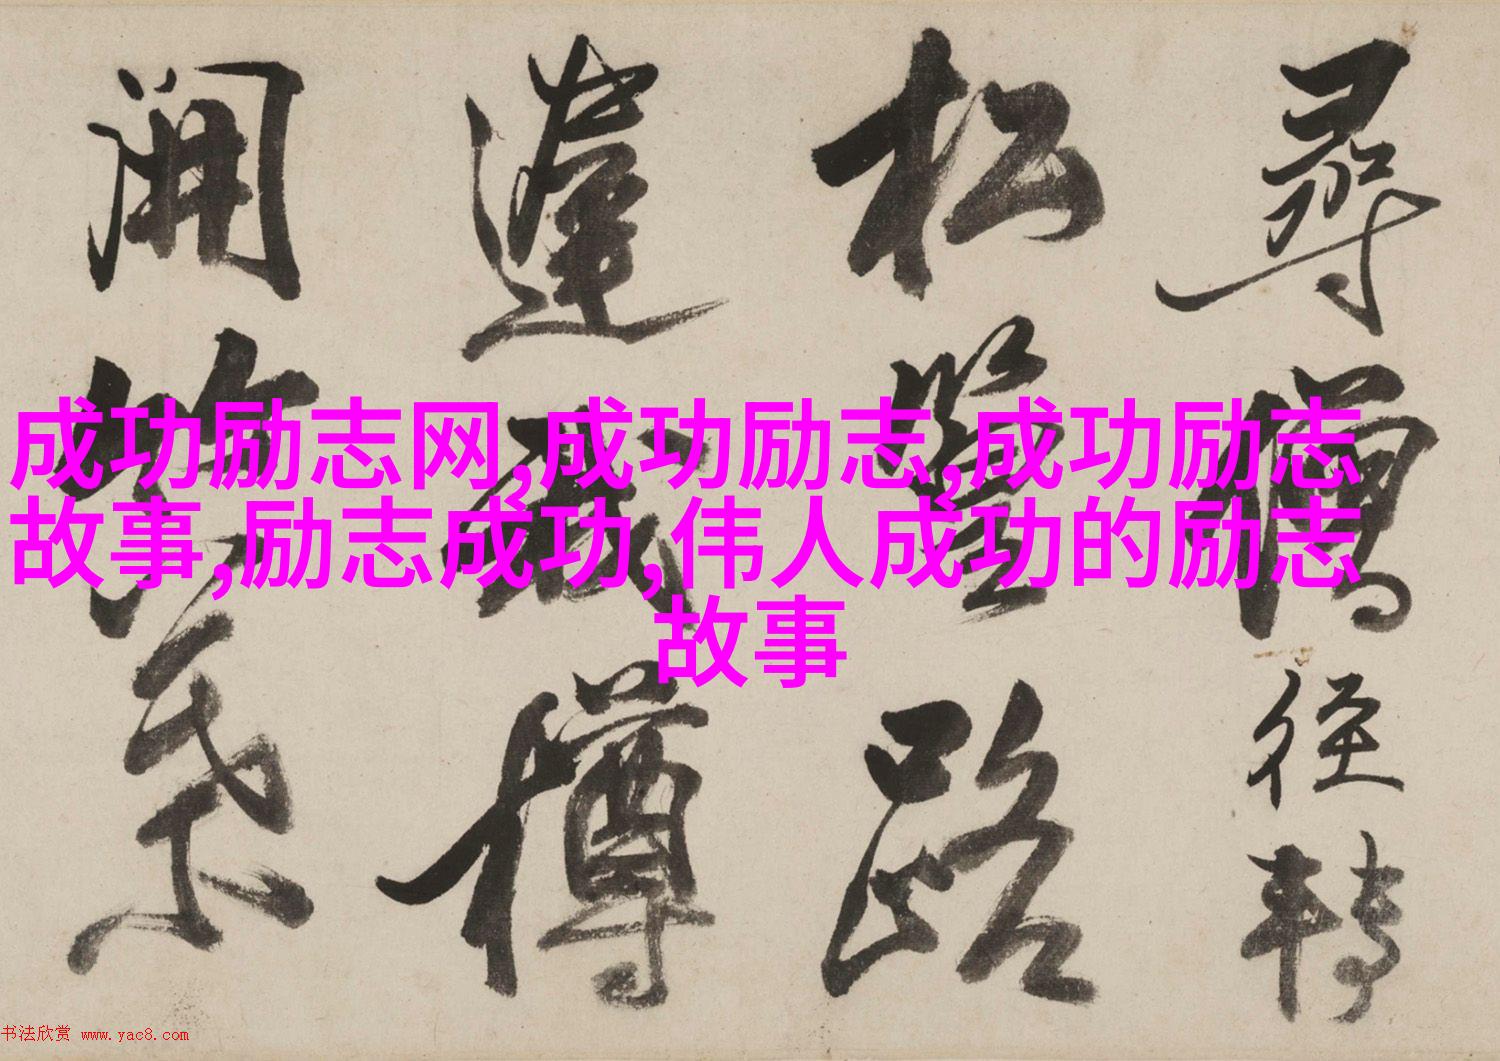 尋僧徑轉
松蘿路
蓬戒樽
開笑
成功励志网,成功励志,成功励志
故事,励志成功,伟人成功的励志
故事
书法欣赏 www.yac8.com